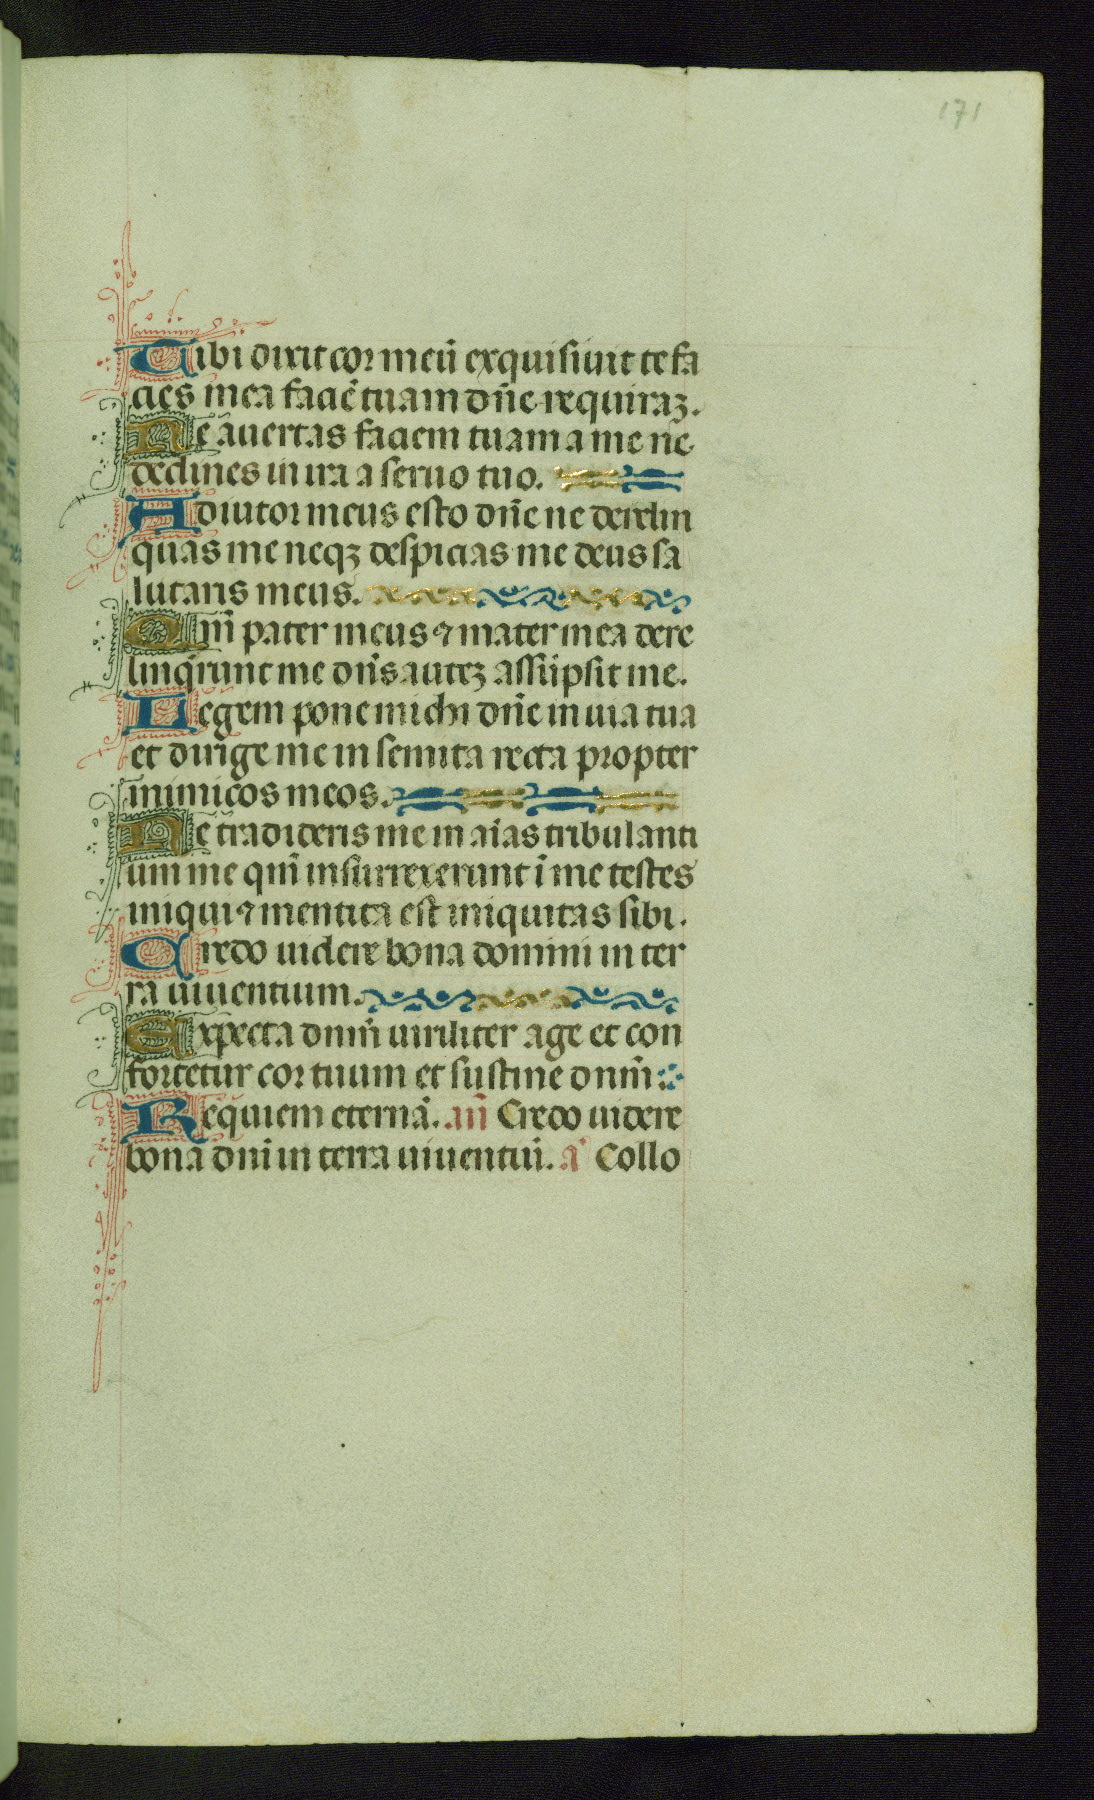 171
Tibi dixit cor meū exquisiuit te fa
cies mea faciē tuam dn̄e requiraꝫ.
Ne auertas faciem tuam a me ne
declines in ira a seruo tuo.
Adiutor meus esto dn̄e ne derelin
quas me neqꝫ despicias me deus sa
lutaris meus.
Qm̄ pater meus ⁊ mater mea dere
linq̄runt me dn̄s auteꝫ assūpsit me.
Legem pone michi dn̄e in uia tua
et dirige me in semita recta propter
inimicos meos.
Ne tradideris me in aīas tribulanti
um me qm̄ insurrexerunt ī me testes
iniqui ⁊ mentita est iniquitas sibi.
Credo uidere bona domini in ter
ra uiuentium.
Expecta dnm̄ uiriliter age et con
fortetur cor tuum et sustine dnm̄
Requiem eternā. an̄ Credo uidere
bona dnī in terra uiuentiū. a Collo